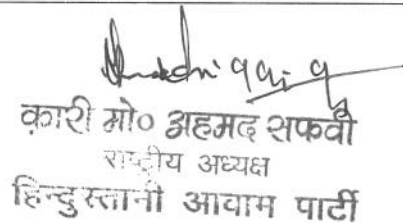 क़ारी मो० अहमद सफवी
राष्ट्रीय अध्यक्ष
हिन्दुस्तानी आवाम पार्टी